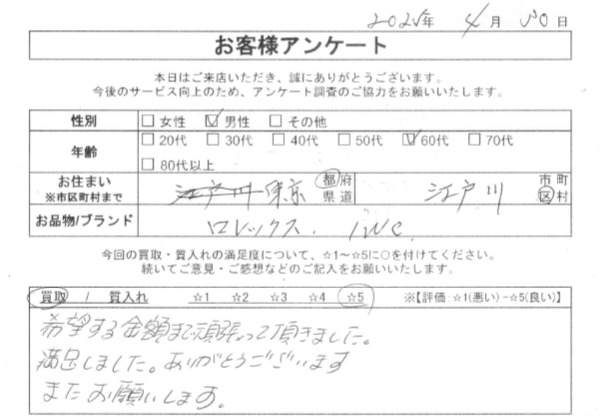 2025年 4月30日
お客様アンケート
本日はご来店いただき、誠にありがとうございます。
今後のサービス向上のため、アンケート調査のご協力をお願いいたします。
性別 □女性 ☑男性 □その他
年齢 □20代 □30代 □40代 □50代 ☑60代 □70代
□80代以上
お住まい ※市区町村まで 東京 都府県道 江戸川 市町区村
お品物/ブランド ロレックス. iwc.
今回の買取・質入れの満足度について、☆1～☆5に○を付けてください。
続いてご意見・ご感想などのご記入をお願いいたします。
買取 / 質入れ ☆1 ☆2 ☆3 ☆4 ☆5 ※【評価:☆1(悪い)-☆5(良い)】
希望する金額まで頑張って頂きました。
満足しました。ありがとうございます
またお願いします。